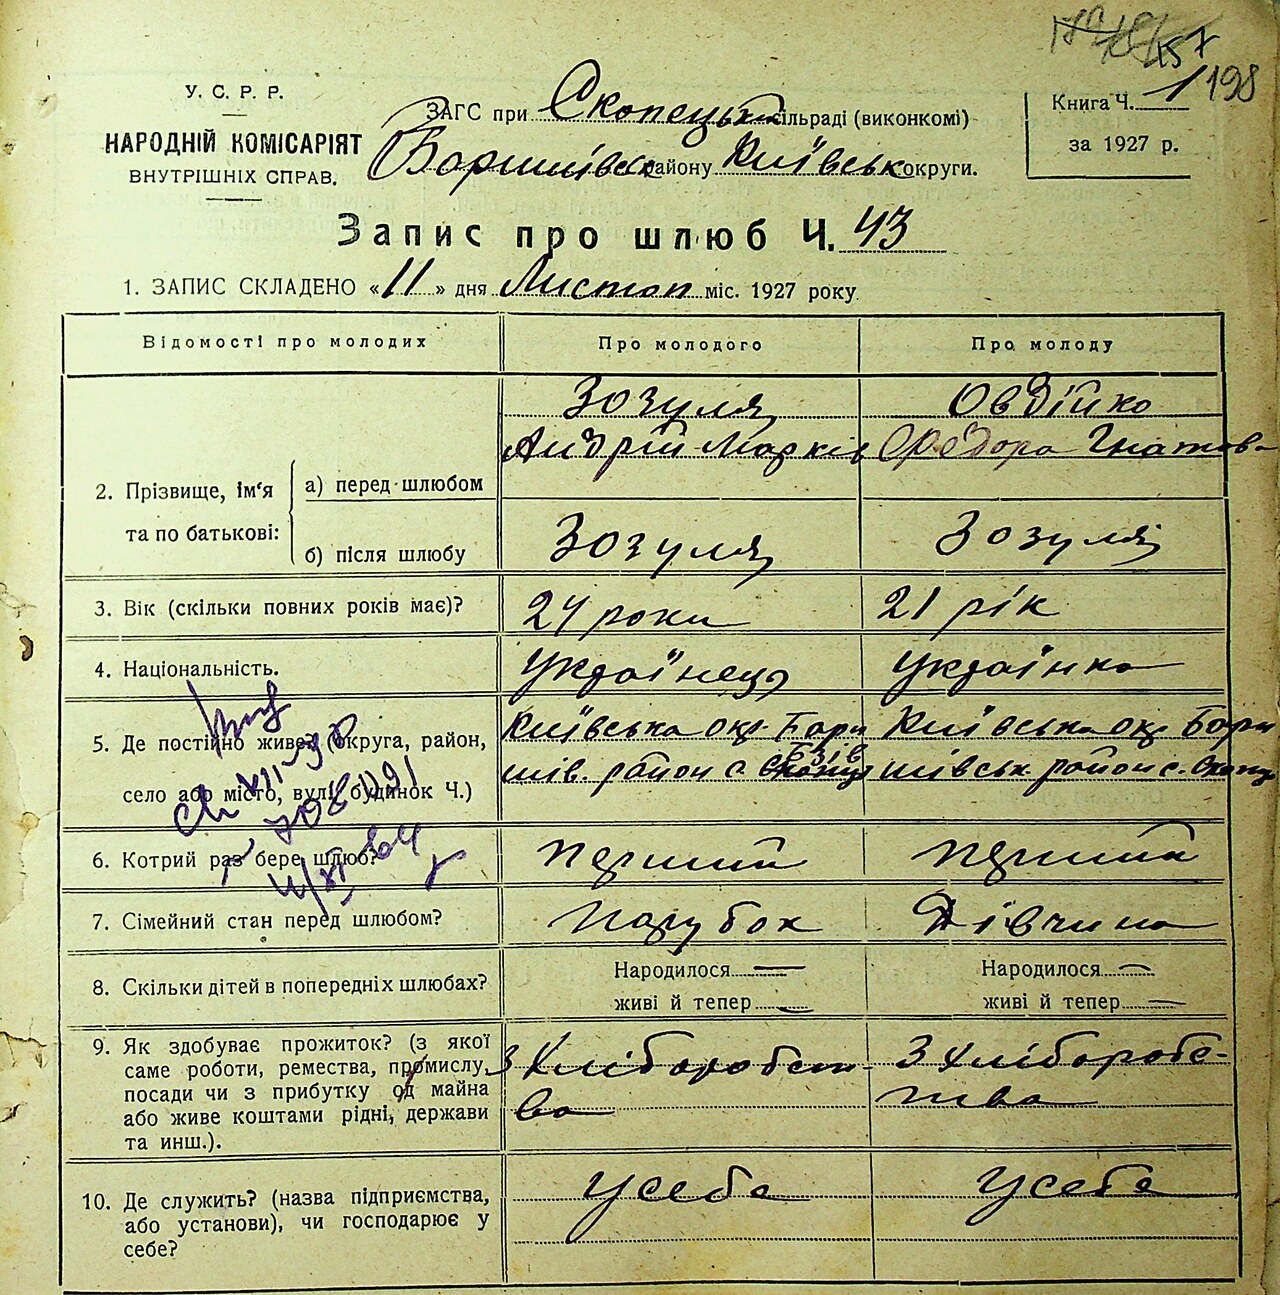 157
198
У. С. Р. Р.
НАРОДНІЙ КОМІСАРІЯТ
ВНУТРІШНІХ СПРАВ.
ЗАГС при Скопецькій сільраді (виконкомі)
Баришівськ району Київськ округи.
Книга Ч. 1
за 1927 р.
Запис про шлюб Ч. 43
1. ЗАПИС СКЛАДЕНО «11» дня Листоп міс. 1927 року
Відомості про молодих Про молодого Про молоду
Зозуля Овдійко
Андрій Марків Федора Гнатова
2. Прізвище, ім'я та по батькові: а) перед шлюбом
б) після шлюбу Зозуля Зозуля
3. Вік (скільки повних років має)? 24 роки 21 рік
4. Національність. Українець Українка
5. Де постійно живе? (округа, район, Київська окр. Бари Київська окр. Бари
село або місто, вули, будинок Ч.) шів. район с. Бзів шівськ. район с. Скопц
6. Котрий раз бере шлюб? перший перший
7. Сімейний стан перед шлюбом? парубок Дівчина
8. Скільки дітей в попередніх шлюбах? Народилося — Народилося —
живі й тепер — живі й тепер —
9. Як здобуває прожиток? (з якої З Хліборобст З Хліборобс-
саме роботи, ремества, промислу, ва тва
посади чи з прибутку од майна
або живе коштами рідні, держави
та инш.).
10. Де служить? (назва підприємства, Усебе Усебе
або установи), чи господарює у
себе?